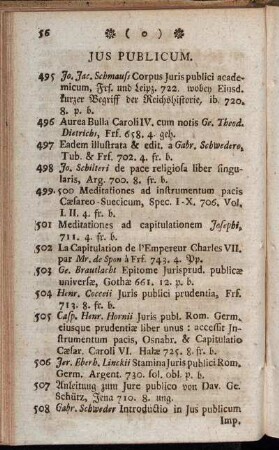 56 * ( o ) *
JUS PUBLICUM.
495 Jo. Jac. Schmauss Corpus Juris publici acade-
micum, Frf. und Leipz. 722. wobey Eiusd.
kurzer Begriff der Reichshistorie, ib. 720.
8. p. b.
496 Aurea Bulla Caroli IV. cum notis Ge. Theod.
Dietrichs, Frf. 658. 4. geh.
497 Eadem illustrata & edit. a Gabr. Schwedero,
Tub. & Frf. 702. 4. fr. b.
498 Jo. Schilteri de pace religiosa liber singu-
laris, Arg. 700. 8. fr. b.
499. 500 Meditationes ad instrumentum pacis
Cæsareo-Suecicum, Spec. I-X. 706, Vol.
I. II. 4. fr. b.
501 Meditationes ad capitulationem Josephi,
711. 4. fr. b.
502 La Capitulation de l'Empereur Charles VII.
par Mr. de Spon à Frf. 743. 4. Pp.
503 Ge. Brautlacht Epitome Jurisprud. publicæ
universæ, Gothæ 661. 12. p. b.
504 Henr. Cocceii Juris publici prudentia, Frf.
713. 8. fr. b.
505 Casp. Henr. Hornii Juris publ. Rom. Germ.
eiusque prudentiæ liber unus : accessit In-
strumentum pacis, Osnabr. & Capitulatio
Cæsar. Caroli VI. Halæ 725. 8. fr. b.
506 Jer. Eberh. Linckii Stamina Juris publici Rom.
Germ. Argent. 730. fol. obl. p. b.
507 Anleitung zum Jure publico von Dav. Ge.
Schürz, Jena 710. 8. ung.
508 Gabr. Schweder Introductio in Jus publicum
Imp.